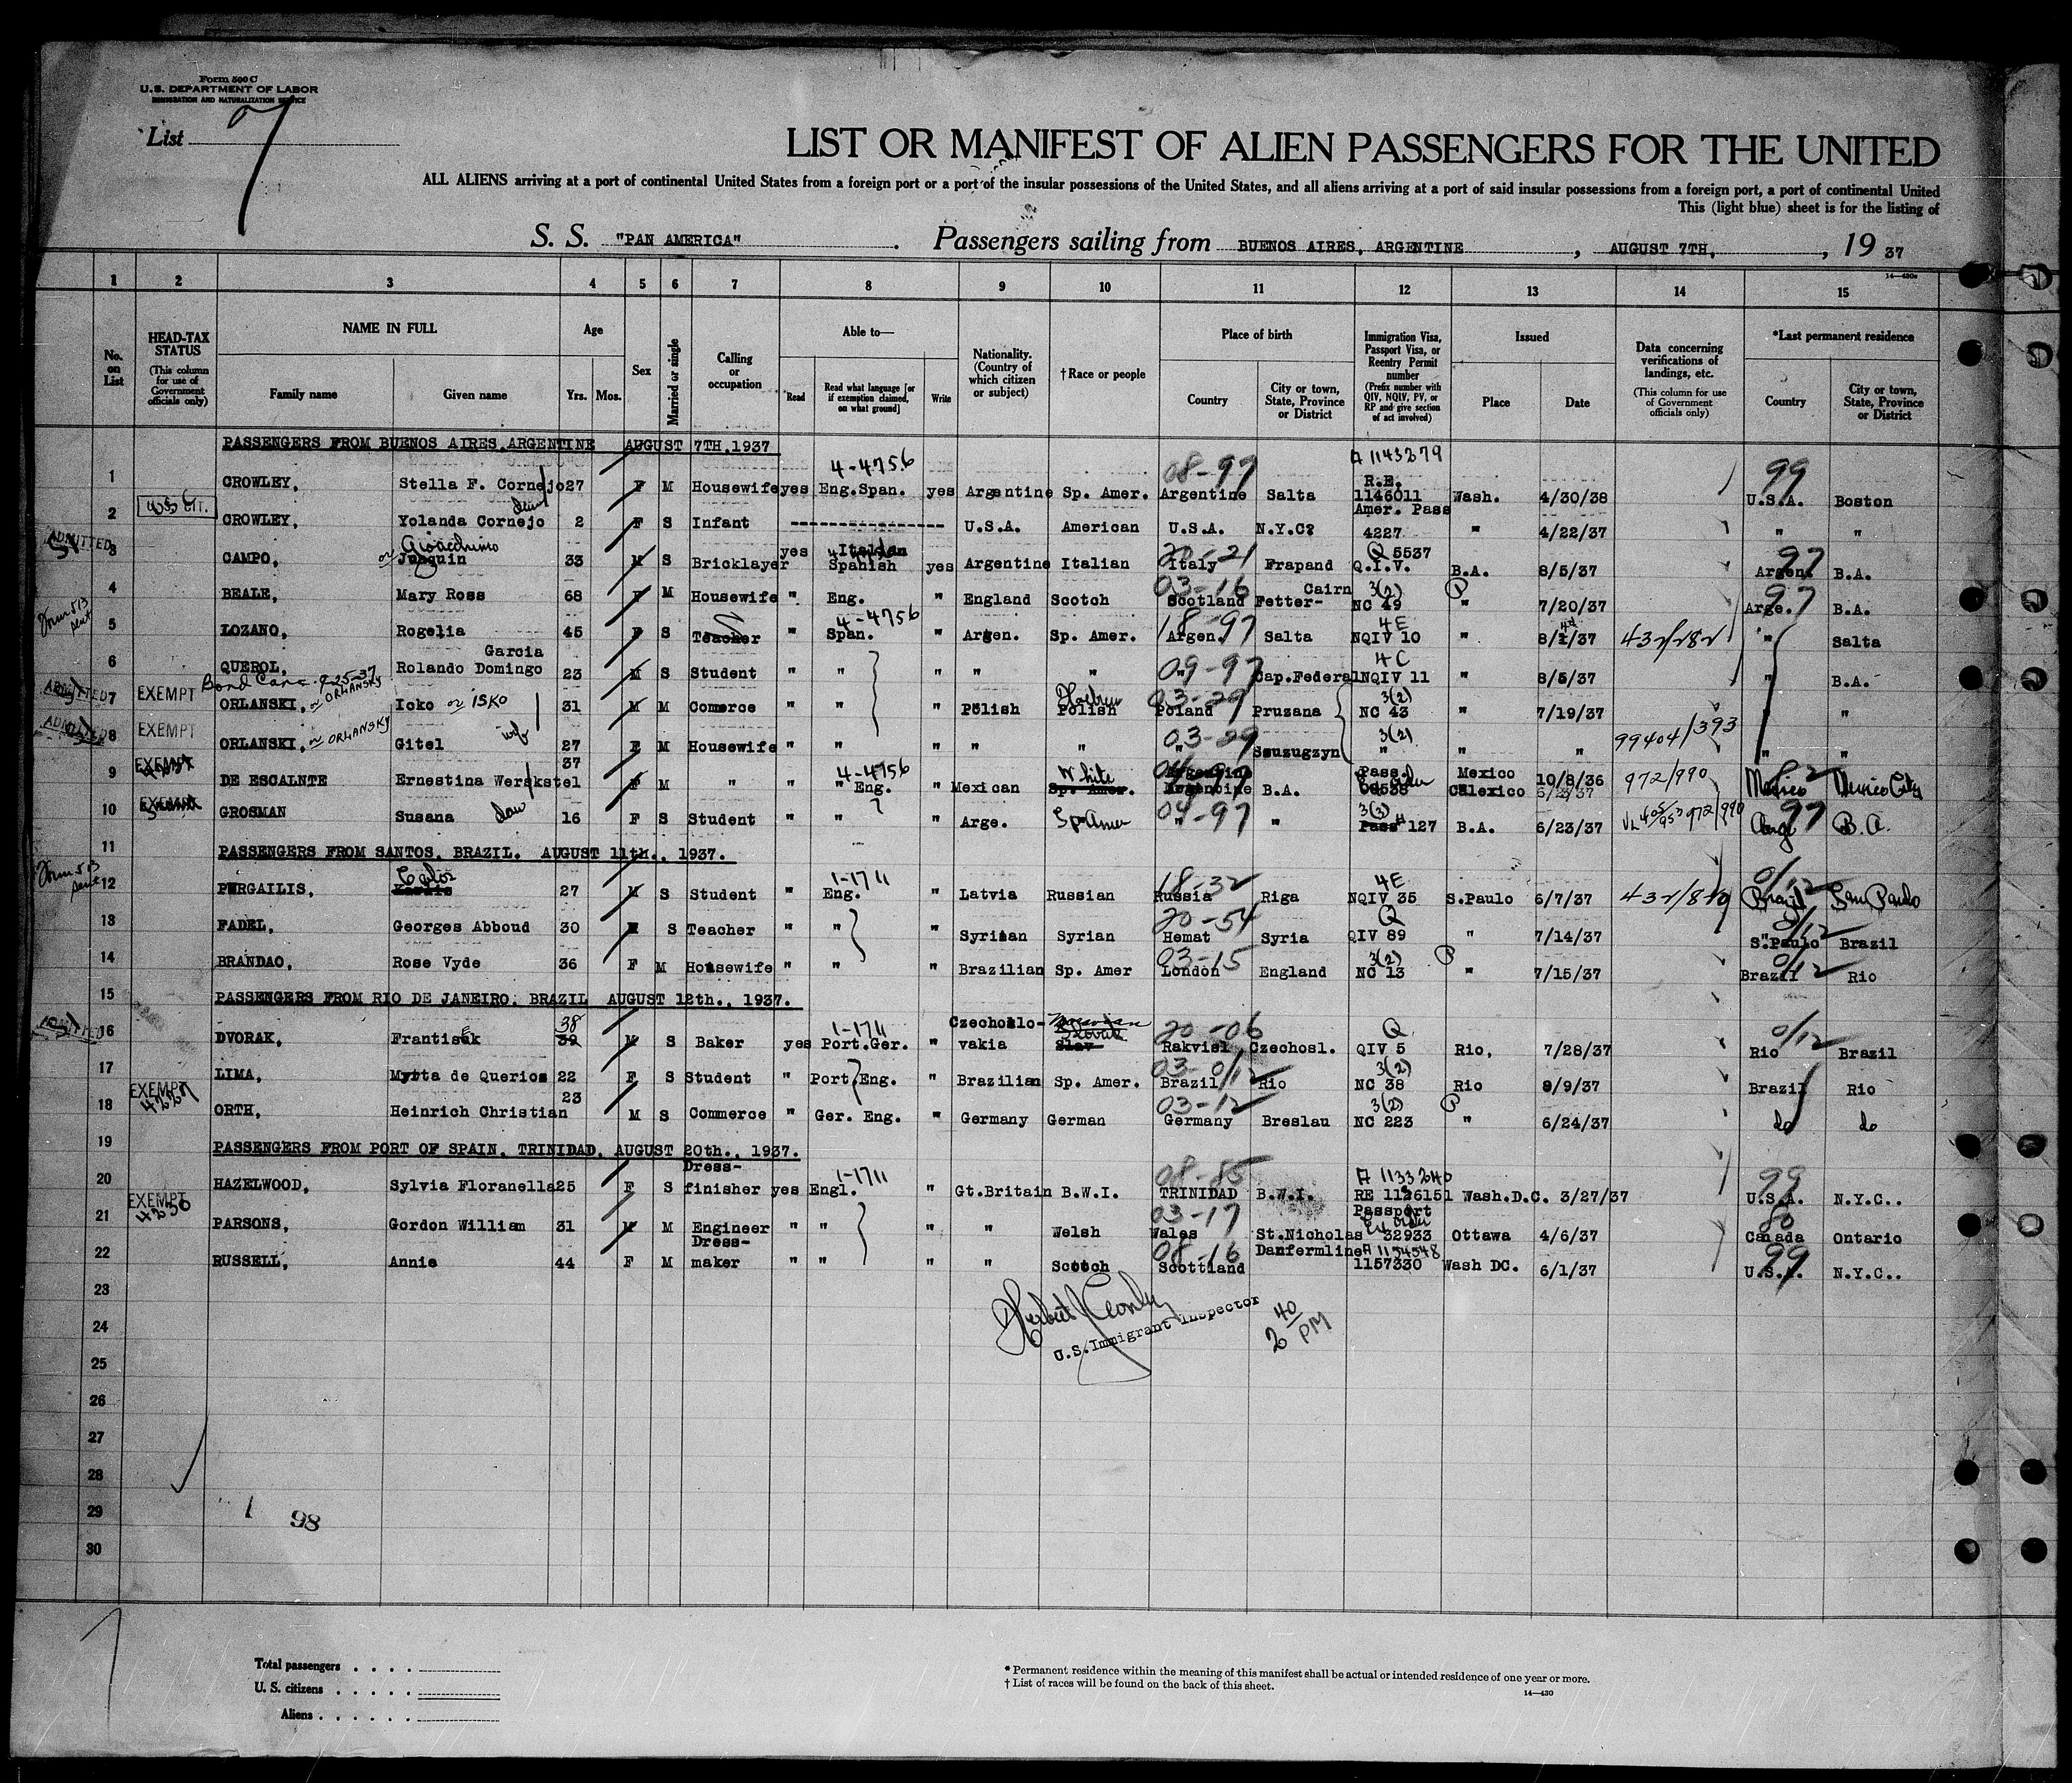 Form 500 C
U.S. DEPARTMENT OF LABOR
IMMIGRATION AND NATURALIZATION SERVICE
List 7
LIST OR MANIFEST OF ALIEN PASSENGERS FOR THE UNITED
ALL ALIENS arriving at a port of continental United States from a foreign port or a port of the insular possessions of the United States, and all aliens arriving at a port of said insular possessions from a foreign port, a port of continental United
This (light blue) sheet is for the listing of
S. S. "PAN AMERICA" . Passengers sailing from BUENOS AIRES, ARGENTINE , AUGUST 7TH, , 19 37
14—430a
1 2 3 4 5 6 7 8 9 10 11 12 13 14 15
No. on List
HEAD-TAX STATUS (This column for use of Government officials only)
NAME IN FULL Family name Given name
Age Yrs. Mos.
Sex
Married or single
Calling or occupation
Able to— Read Read what language [or if exemption claimed, on what ground] Write
Nationality. (Country of which citizen or subject)
†Race or people
Place of birth Country City or town, State, Province or District
Immigration Visa, Passport Visa, or Reentry Permit number (Prefix number with QIV, NQIV, PV, or RP and give section of act involved)
Issued Place Date
Data concerning verifications of landings, etc. (This column for use of Government officials only)
*Last permanent residence Country City or town, State, Province or District
PASSENGERS FROM BUENOS AIRES, ARGENTINE AUGUST 7TH, 1937
4-4756 08-97 A 1143279 99
1 CROWLEY, Stella F. Cornejo 27 F M Housewife yes Eng.Span. yes Argentine Sp. Amer. Argentine Salta R.E. 1146011 Wash. 4/30/38 U.S.A. Boston
2 CROWLEY, Yolanda Cornejo 2 F S Infant ---------------- U.S.A. American U.S.A. N.Y.C? Amer. Pass 4227 " 4/22/37 " "
ADMITTED
3 CAMPO, or Gioacchino Juaquin 33 M S Bricklayer yes Italian Spanish yes Argentine Italian 20-21 Italy Frapand Q 5537 Q.I.V. B.A. 8/5/37 97 Argent B.A.
4 BEALE, Mary Ross 68 F M Housewife " Eng. " England Scotch 03-16 Scotland Cairn Fetter- 3(2) NC 49 P " 7/20/37 97 Arge. B.A.
Form 513 sent
5 LOZANO, Rogelia 45 F S Teacher " 4-4756 Span. " Argen. Sp. Amer. 18-97 Argen. Salta 4E NQIV 10 " 8/4/37 432/282 " Salta
6 QUEROL, Garcia Rolando Domingo 23 M S Student " " " " " 09-97 " Cap.Federal 4C NQIV 11 " 8/5/37 " B.A.
Bond Canc. 9-25-37
ADMITTED
7 EXEMPT ORLANSKI, or ORLANSKY Icko or ISKO 31 M M Comerce " " " Polish Hebrew Polish 03-29 Poland Pruzana 3(2) NC 43 " 7/19/37 " "
ADMITTED
8 EXEMPT ORLANSKI, or ORLANSKY Gitel wife 27 F M Housewife " " " " " 03-29 " Souzugzyn 3(2) " " " 99404/393 " "
9 EXEMPT DE ESCALNTE Ernestina Werskstel 37 F M " " 4-4756 " Eng. " Mexican White Sp. Amer. Argentine B.A. Pass. Mexico Calexico 10/8/36 972/990 Mexico Mexico City
10 EXEMPT GROSMAN Susana dau 16 F S Student " " " Arge. Sp Amer 04-97 " " 3(3) Pass 127 B.A. 6/23/37 97 Arg B.A.
11 PASSENGERS FROM SANTOS, BRAZIL. AUGUST 11th., 1937.
Form 513 sent
12 PURGAILIS, Carlos 27 M S Student " 1-1711 Eng. " Latvia Russian 18-32 Russia Riga 4E NQIV 35 S.Paulo 6/7/37 432/ 0/12 Brazil San Paulo
13 FADEL, Georges Abboud 30 M S Teacher " " " Syrian Syrian 20-54 Hemat Syria Q QIV 89 " 7/14/37 0/12 S.Paulo Brazil
14 BRANDAO, Rose Vyde 36 F M Housewife " " " Brazilian Sp. Amer 03-15 London England 3(2) NC 13 P " 7/15/37 0/12 Brazil Rio
15 PASSENGERS FROM RIO DE JANEIRO, BRAZIL AUGUST 12th., 1937.
ADMITTED
16 DVORAK, Frantisek 38 39 M S Baker yes 1-1711 Port.Ger. " Czechoslo- vakia Moravian Slovak Slav 20-06 Rakvisl Czechosl. Q QIV 5 Rio, 7/28/37 0/12 Rio Brazil
17 LIMA, Myrta de Querios 22 F S Student " Port Eng. " Brazilian Sp. Amer. 03-0/12 Brazil Rio 3(2) NC 38 Rio 8/9/37 Brazil Rio
18 EXEMPT ORTH, Heinrich Christian 23 M S Commerce " Ger. Eng. " Germany German 03-12 Germany Breslau 3(2) NC 223 P " 6/24/37 do do
19 PASSENGERS FROM PORT OF SPAIN, TRINIDAD, AUGUST 20th., 1937.
20 HAZELWOOD, Sylvia Floranella 25 F S Dress- finisher yes 1-1711 Engl. " Gt.Britain B.W.I. 08-85 TRINIDAD B.W.I. A 1133240 RE 1126151 Wash.D.C. 3/27/37 99 U.S.A. N.Y.C..
21 EXEMPT PARSONS, Gordon William 31 M M Engineer " " " " Welsh 03-17 Wales St.Nicholas Passport Ex Order 32933 Ottawa 4/6/37 80 Canada Ontario
22 RUSSELL, Annie 44 F M Dress- maker " " " " Scotch 08-16 Scottland Danfermline A 1154548 1157330 Wash DC. 6/1/37 99 U.S.A. N.Y.C..
23
U.S. Immigrant Inspector 2 40 PM
24
25
26
27
28
29
1 98
30
Total passengers . . . .
U. S. citizens . . . . .
Aliens . . . . . .
* Permanent residence within the meaning of this manifest shall be actual or intended residence of one year or more.
† List of races will be found on the back of this sheet.
14—430